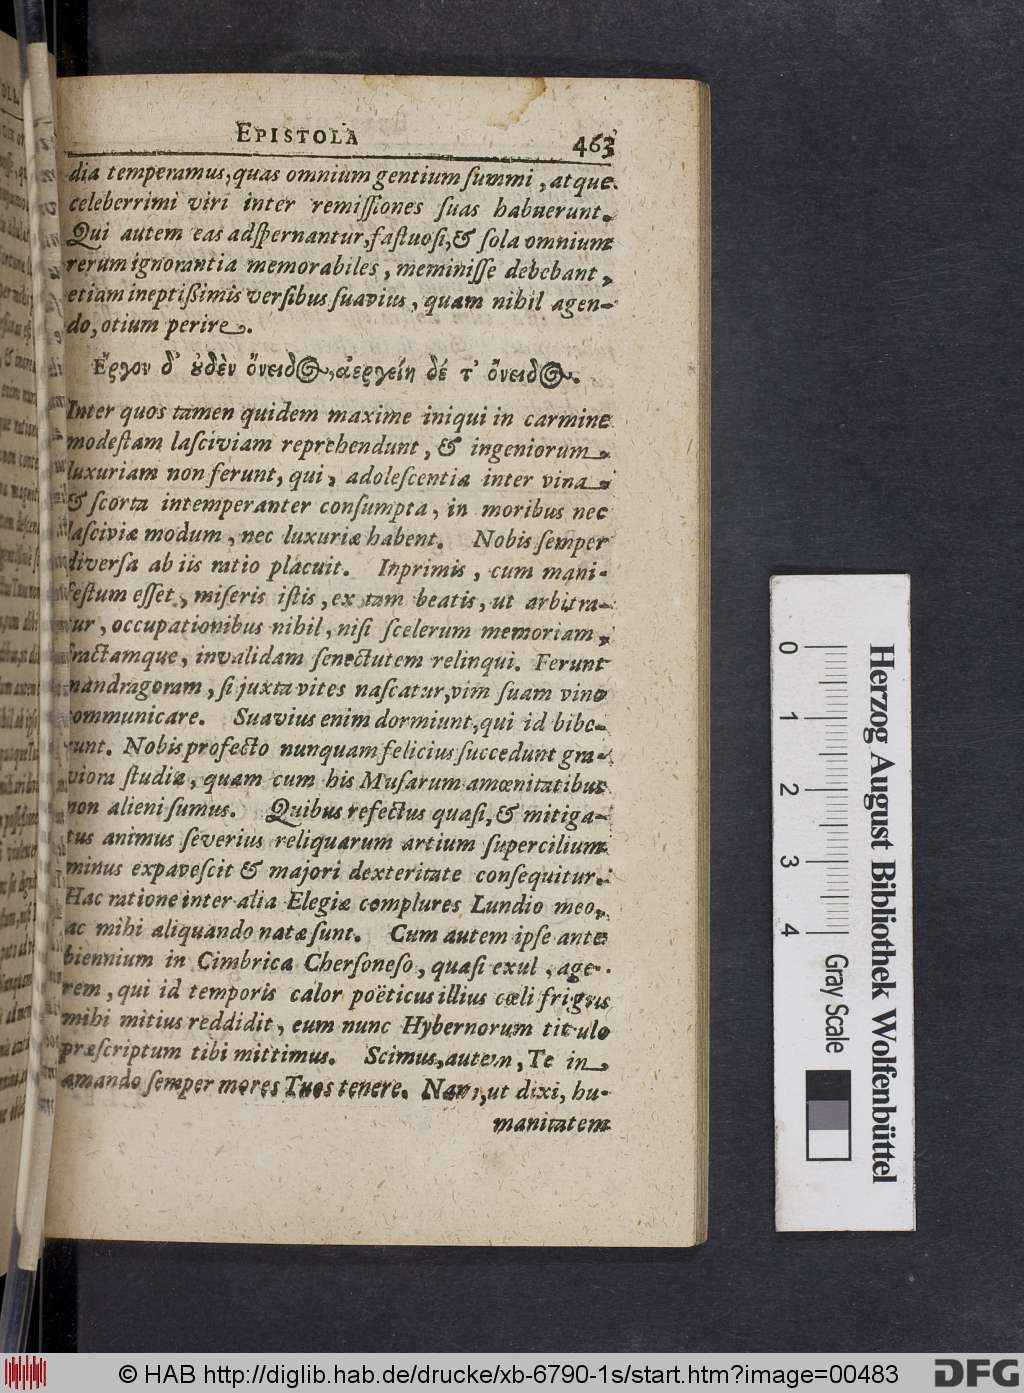 EPISTOLA 463
dia temperamus, quas omnium gentium ſummi, atque
celeberrimi viri inter remiſſiones ſuas habuerunt.
Qui autem eas adſpernantur, faſtuoſi, & ſola omnium
rerum ignorantia memorabiles, meminiſſe debebant,
etiam ineptißimis verſibus ſuavius, quam nihil agen-
do, otium perire.
Ἔργον δ' ȣ̓δὲν ὄνειδος, ἀεργείη δέ τ' ὄνειδος.
Inter quos tamen quidem maxime iniqui in carmine
modeſtam laſciviam reprehendunt, & ingeniorum
luxuriam non ferunt, qui, adoleſcentia inter vina
& ſcorta intemperanter conſumpta, in moribus nec
laſciviæ modum, nec luxuriæ habent. Nobis ſemper
diverſa ab iis ratio placuit. Inprimis, cum mani-
feſtum eſſet, miſeris iſtis, ex tam beatis, ut arbitra-
tur, occupationibus nihil, niſi ſcelerum memoriam,
fractamque, invalidam ſenectutem relinqui. Ferunt
mandragoram, ſi juxta vites naſcatur, vim ſuam vino
communicare. Suavius enim dormiunt, qui id bibe-
runt. Nobis profecto nunquam felicius ſuccedunt gra-
viora ſtudia, quam cum his Muſarum amœnitatibus
non alieni ſumus. Quibus refectus quaſi, & mitiga-
tus animus ſeverius reliquarum artium ſupercilium
minus expaveſcit & majori dexteritate conſequitur.
Hac ratione inter alia Elegiæ complures Lundio meo,
ac mihi aliquando natæ ſunt. Cum autem ipſe ante
biennium in Cimbrica Cherſoneſo, quaſi exul, age-
rem, qui id temporis calor poëticus illius cœli frigus
mihi mitius reddidit, eum nunc Hybernorum titulo
præſcriptum tibi mittimus. Scimus, autem, Te in
amando ſemper mores Tuos tenere. Nam, ut dixi, hu-
manitatem
0 1 2 3 4
Gray Scale
Herzog August Bibliothek Wolfenbüttel
© HAB http://diglib.hab.de/drucke/xb-6790-1s/start.htm?image=00483
DFG